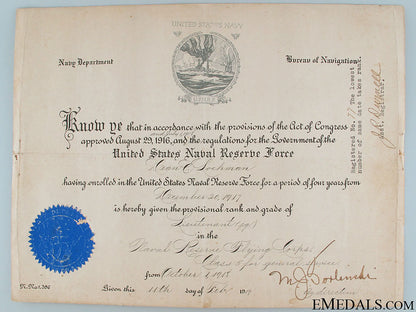 UNITED STATES NAVY
Navy Department
Bureau of Navigation
Know ye that in accordance with the provisions of the Act of Congress
approved August 29, 1916, and the regulations for the Government of the
United States Naval Reserve Force
Dean E. Lochman
having enrolled in the United States Naval Reserve Force for a period of four years from
December 20, 1917
is hereby given the provisional rank and grade of
Lieutenant (jg)
in the
Naval Reserve Flying Corps
Class 5 for general service
from October 1, 1918
Given this 11th day of Feby 1919
By direction
N. Nav. 306
Registered No. 77 The lowest
number of same date takes rank.
Asst. Registrar
EMEDALS.COM